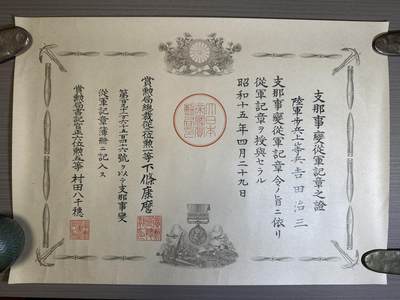 支那事變從軍記章之證
陸軍步兵上等兵吉田治三
支那事變從軍記章令ノ旨ニ依リ
從軍記章ヲ授與セラル
昭和十五年四月二十九日
大日本
賞勲局總裁從四位勲二等下條康麿
號ヲ以テ支那事變
從軍記章簿冊ニ記入ス
賞勲局書記官正六位勲五等村田八千穗